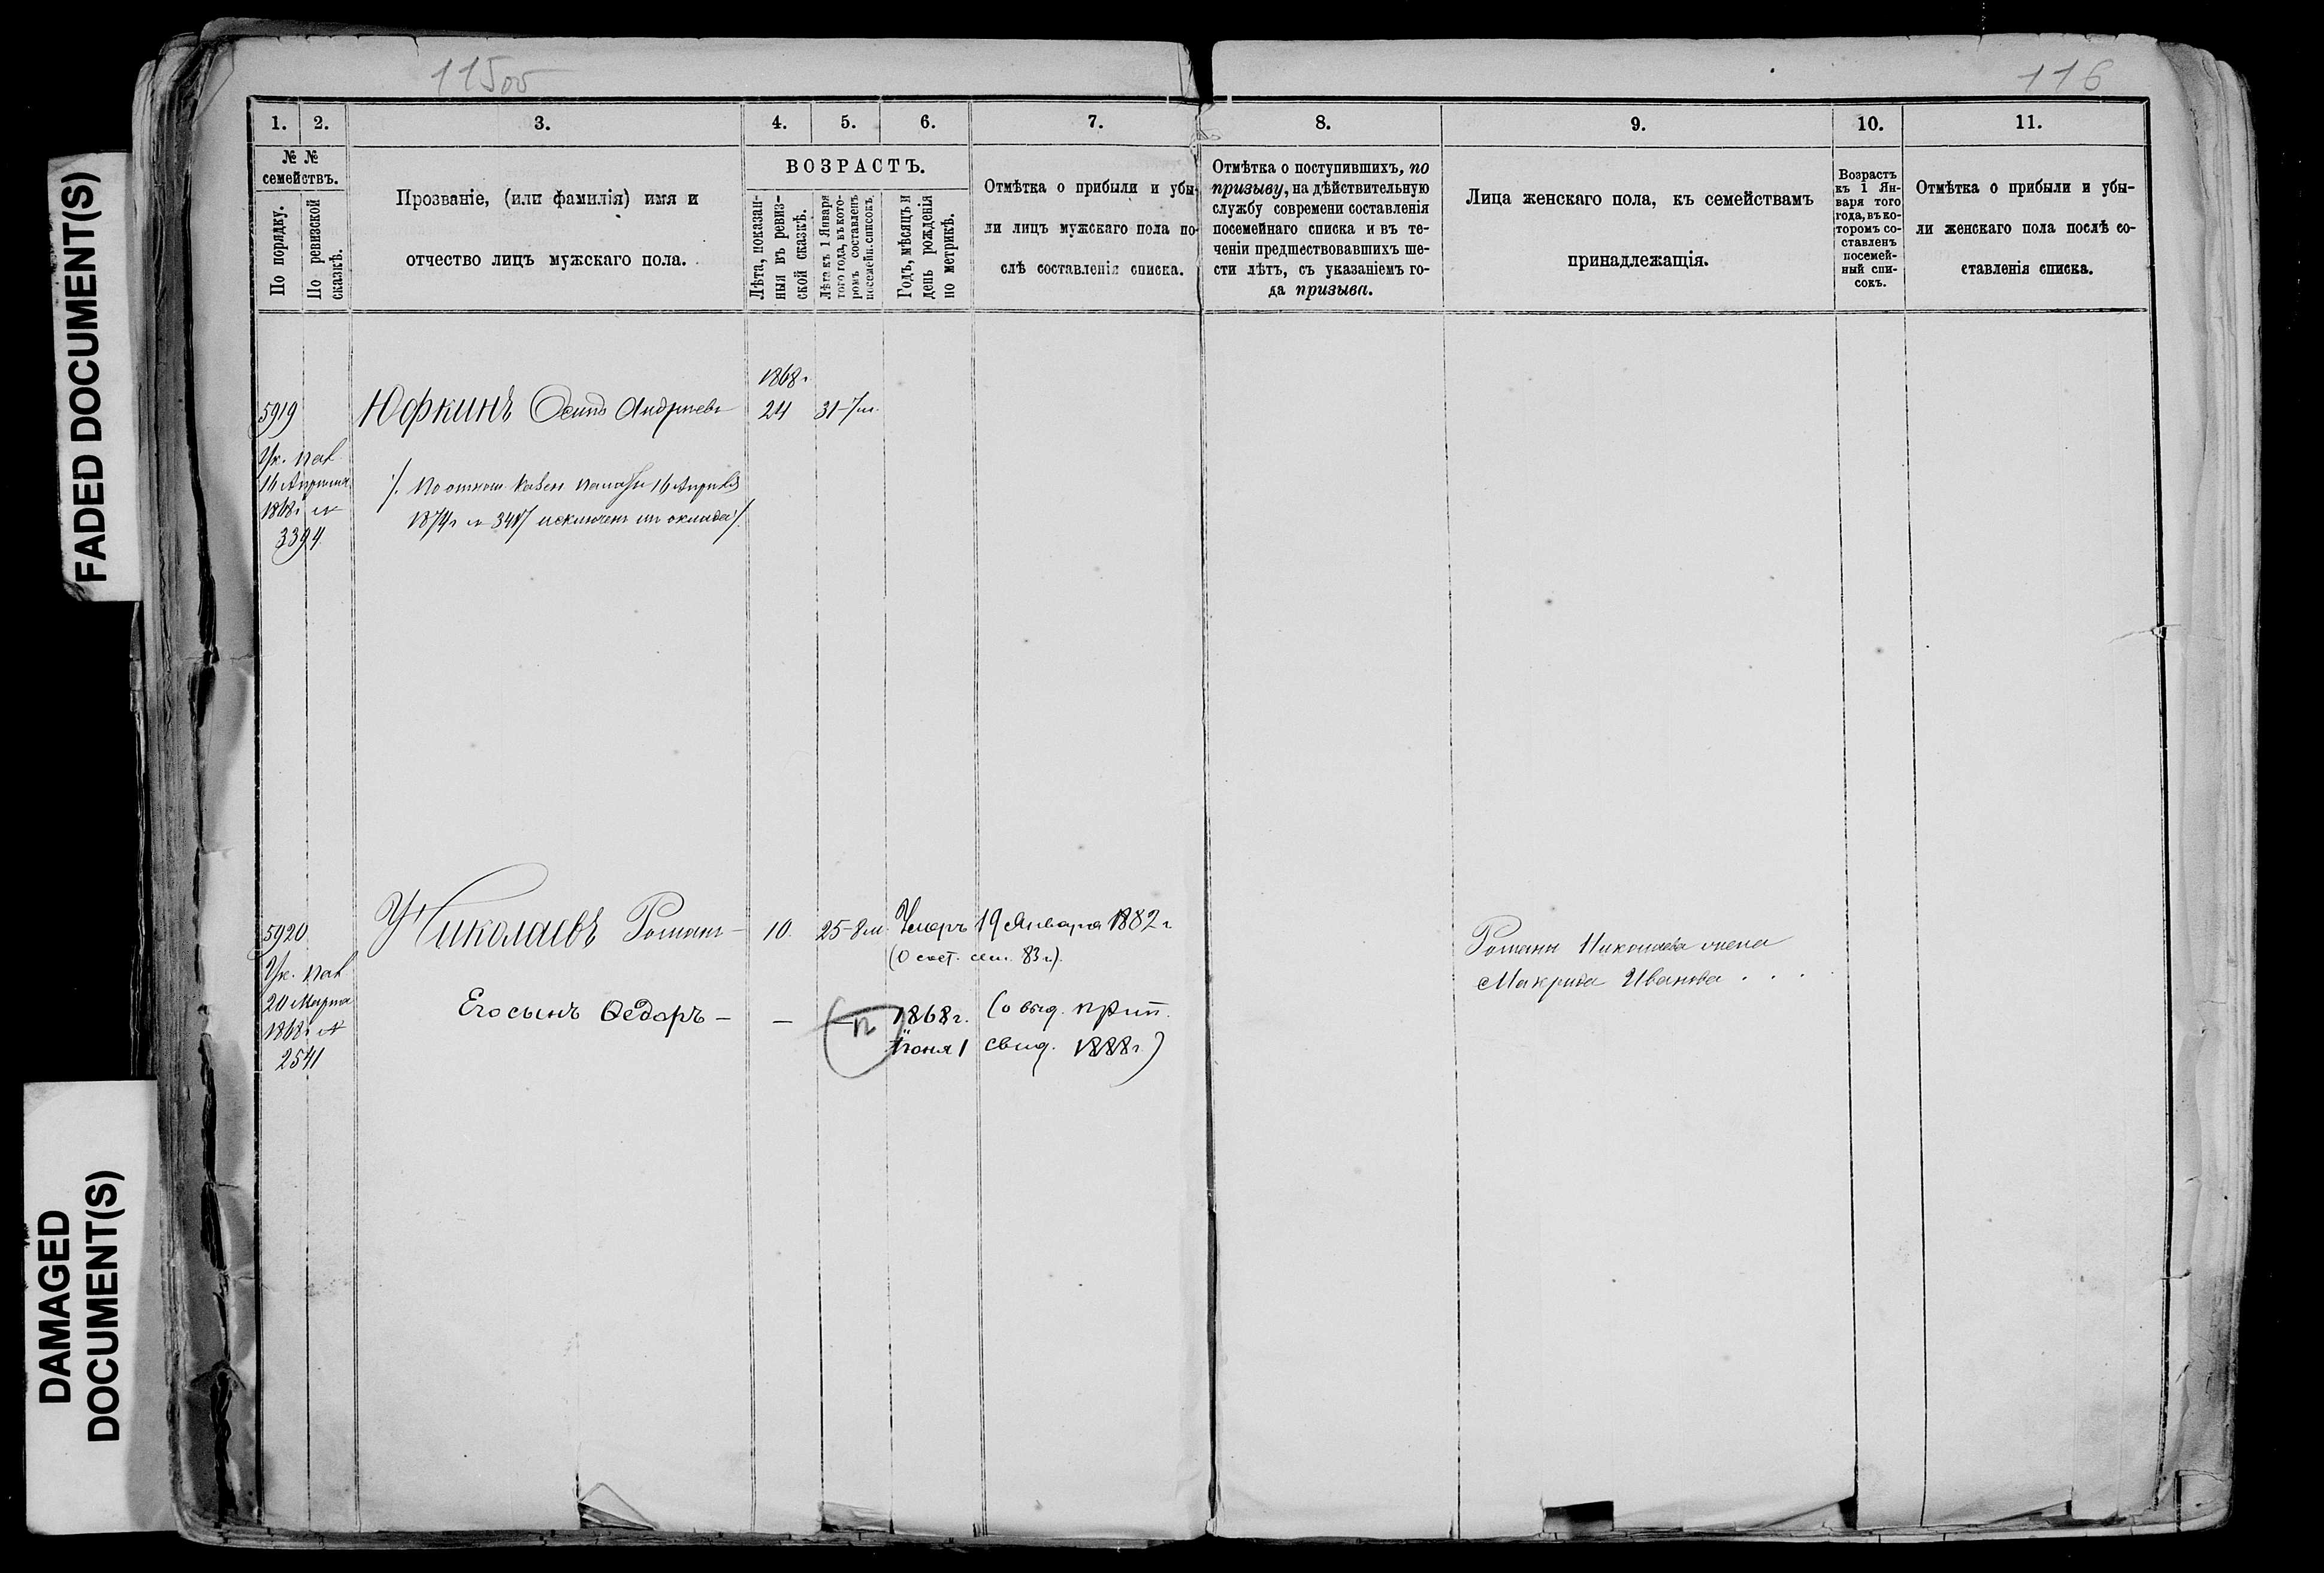 FADED DOCUMENT(S)
DAMAGED
DOCUMENT(S)
115об
116
1. 2. 3. 4. 5. 6. 7. 8. 9. 10. 11.
№ №
семействъ.
По порядку.
По ревизской
сказкѣ.
Прозваніе, (или фамилія) имя и
отчество лицъ мужскаго пола.
ВОЗРАСТЪ.
Лѣта, показан-
ныя въ ревиз-
ской сказкѣ.
Лѣта къ 1 Января
того года, въ кото-
ромъ составленъ
посемейн. списокъ.
Годъ, мѣсяцъ и
день рожденія
по метрикѣ.
Отмѣтка о прибыли и убы-
ли лицъ мужскаго пола по-
слѣ составленія списка.
Отмѣтка о поступившихъ, по
призыву, на дѣйствительную
службу современи составленія
посемейнаго списка и въ те-
ченіи предшествовавшихъ ше-
сти лѣтъ, съ указаніемъ го-
да призыва.
Лица женскаго пола, къ семействамъ
принадлежащія.
Возрастъ
къ 1 Ян-
варя того
года, въ ко-
торомъ со-
ставленъ
посемей-
ный спи-
сокъ.
Отмѣтка о прибыли и убы-
ли женскаго пола послѣ со-
ставленія списка.
1868 г
5919 Юфкинъ Осипъ Андреевъ 24 31-7м.
Ук. пал
16 Апреля
1868г №
3394
/. По отнош. Казен палаты 16 Апреля
1874г № 3417 исключенъ из оклада /.
5920 Николаевъ Романъ - 10. 25-8м. Умеръ 19 Января 1882 г
(О сост. сем. 83 г.)
Ук. пал
20 Марта
1868г №
2541
Его сынъ Ѳедоръ - - 1868г. (о выд. прип.
Іюня 1 свид. 1888г.)
Романа Николаева жена
Макрида Иванова . . .